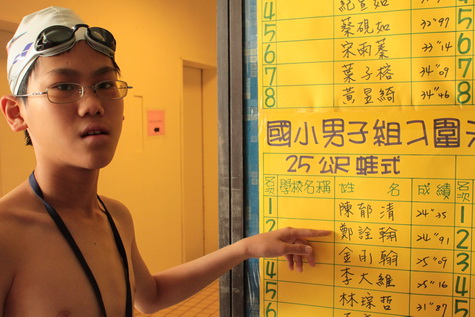 4 紀宣如
5 蔡硯如 32"97 5
6 宋雨蓁 33"14 6
7 葉子榕 34"09 7
8 黃昱綺 34"46 8
國小男子組入圍
25公尺蛙式
名次 學校名稱 姓名 成績 名次
1 陳郁清 24"35 1
2 鄭詮翰 24"91 2
3 金剛翰 25"09 3
4 李大維 25"16 4
5 林琛哲 31"87 5